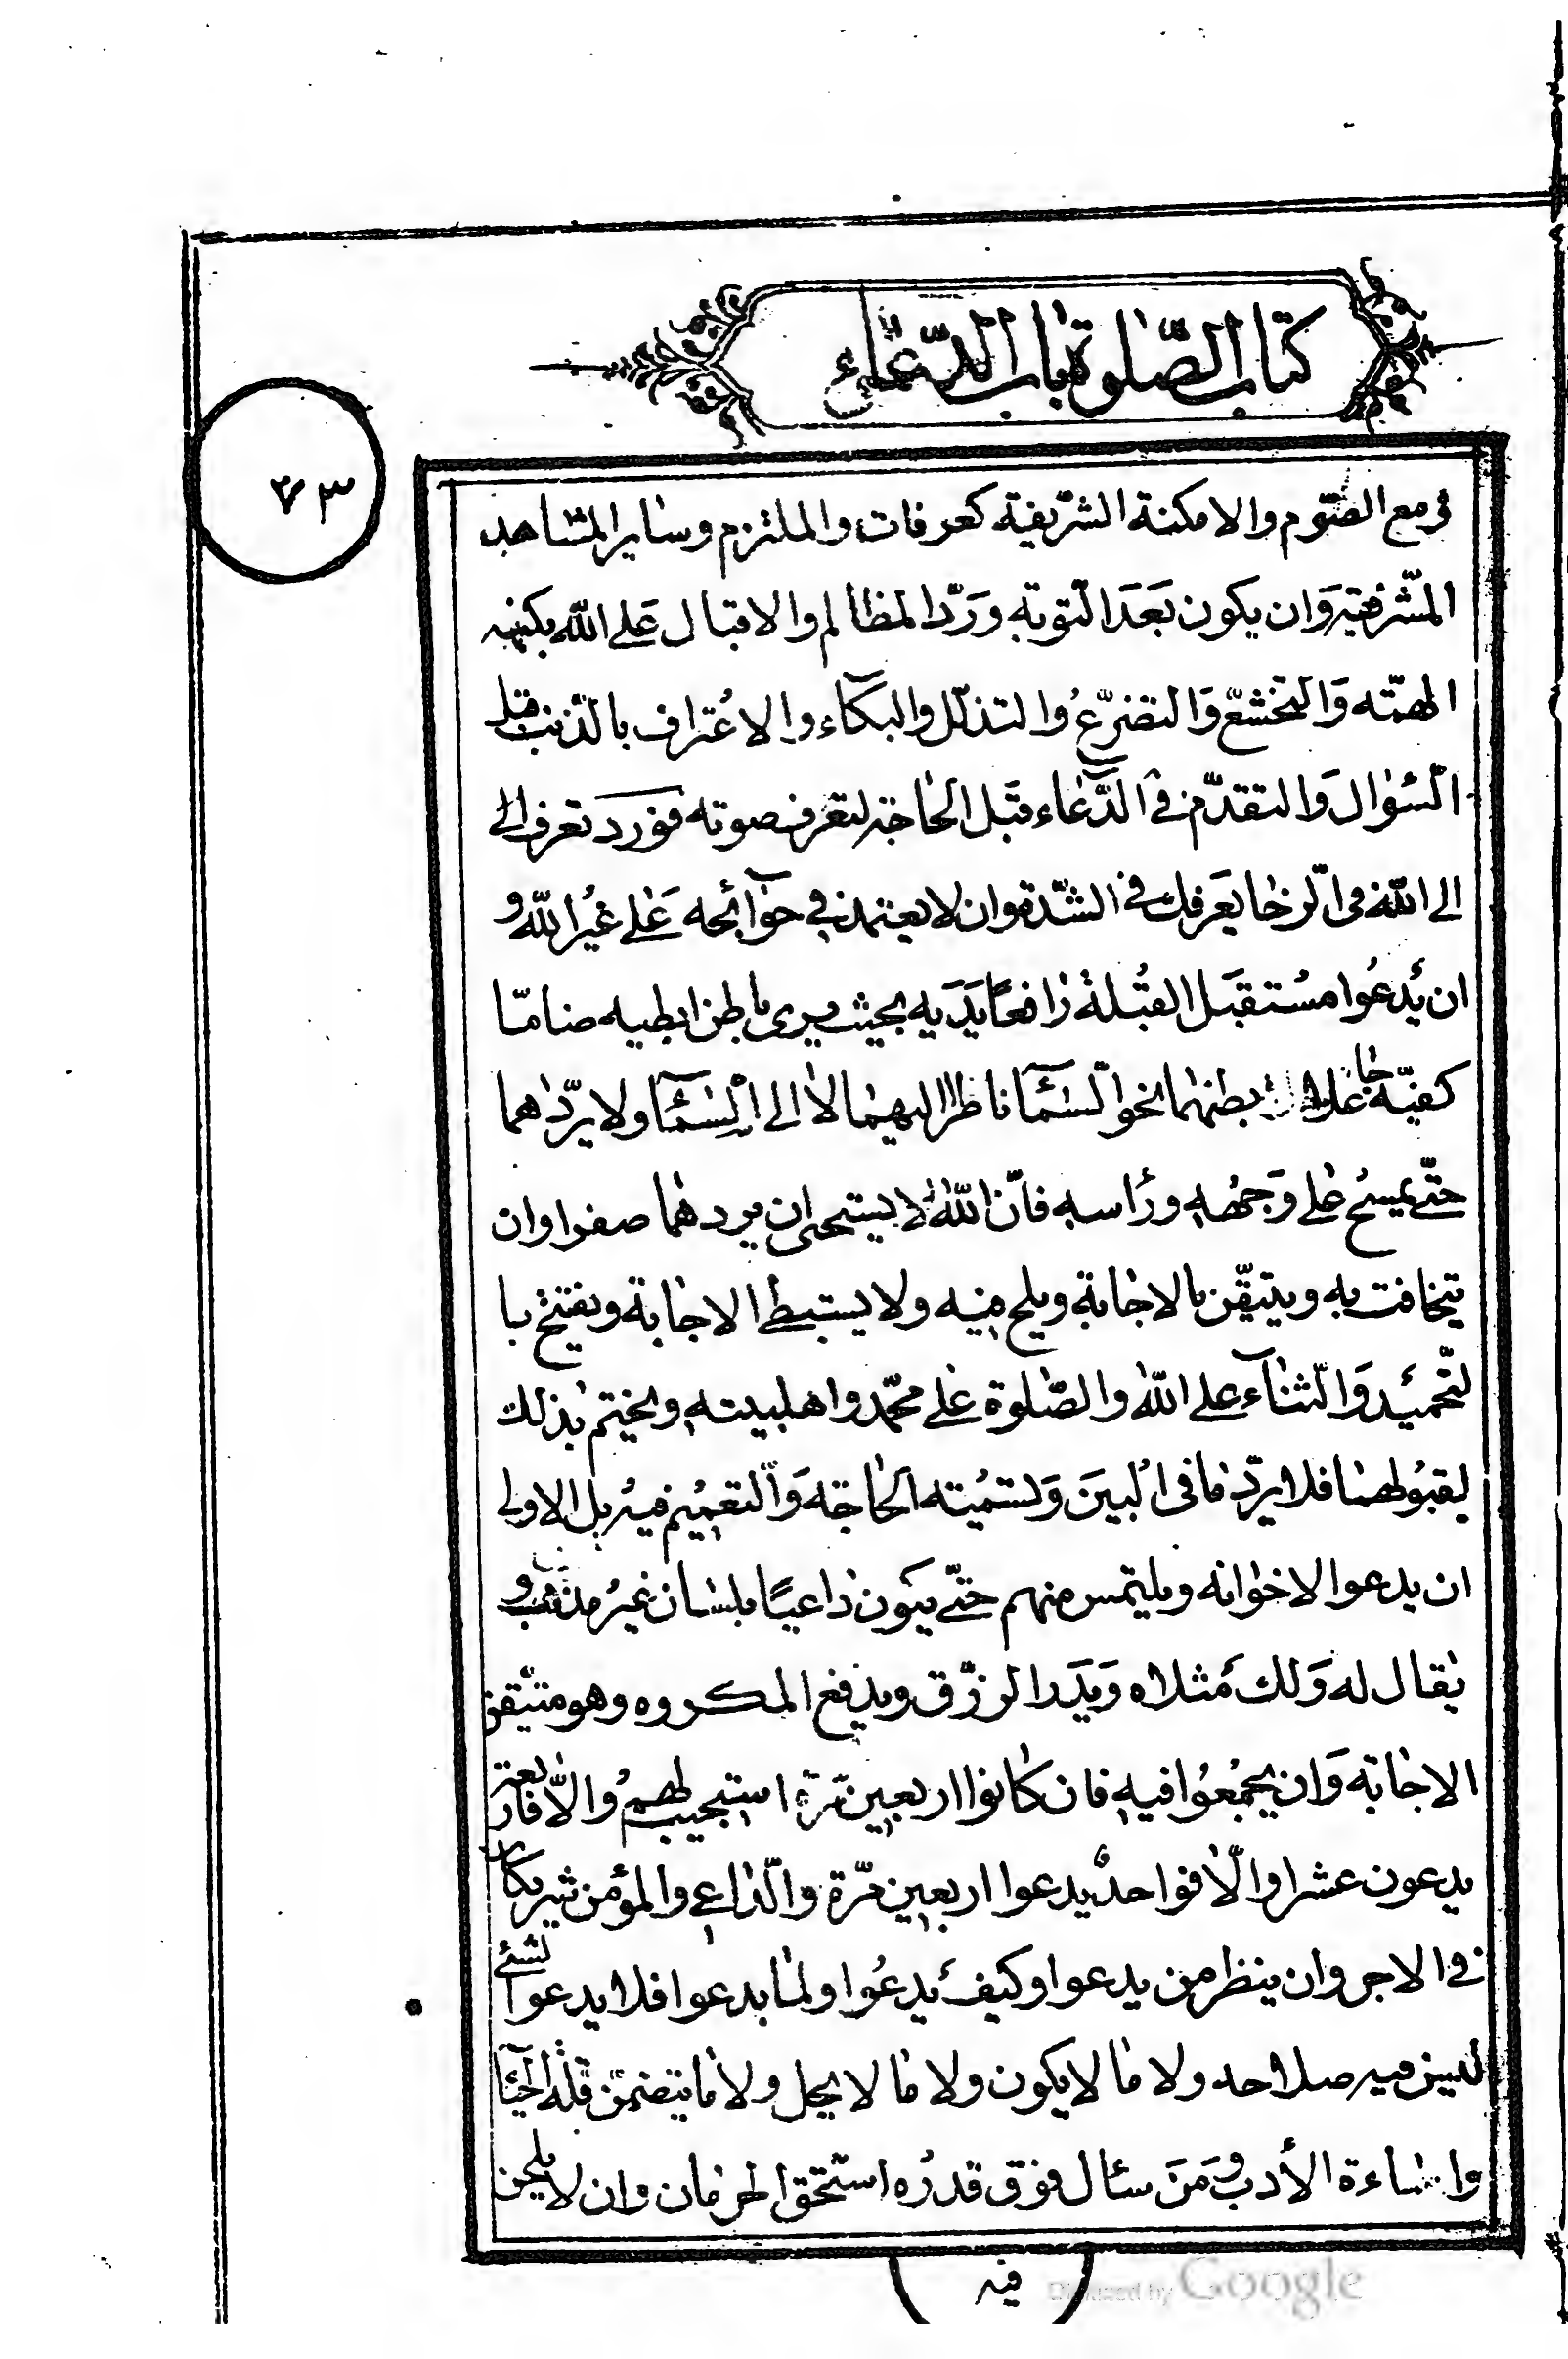 كتاب الصّلوة باب الدّعاء
٧٣
فى مع الصّوم والامكنة الشّريفة كعرفات والملتزم وساير المشاهد
المشّرفة وَان يكون بَعَدَ التّوبة وَرَدّ المظالم والاقبال عَلى اللّه بكنه
الهمّته وَالتخشعّ وَالتضرّعُ والتذلّل والبكآء والاعُتراف بالذنب قبل
السُئوال وَالتقدّم فى الدُّعآء قبَل الحاجة لتعرف صوته فورد تعرف الى
الى اللّه فى الرخا يعَرفك فى الشّدة وان لا يعتمد فى حوآئجه عَلى غيُر اللّه و
ان يُدعُوا مسُتقبَل القبُلة رافعًا يَدَيه بحيث يرى باطن ابطيه ضامّا
كفيّه جاعلا بطنهما نحو السّمآ ناظرا اليهما لا الى السّمآ ولا يردّهما
حتّى يمسح على وَجهُه ورُاسه فانّ اللّه لا يستحى ان يردهما صفرا وان
يتخافت به ويتيقّن بالاجابة ويلح فيه ولا يستبطى الاجابة ويفتتح با
لتحّميُد وَالثناآء على اللّه والصّلوة على محمّد واهلبيته ويختم بذلك
ليقبوُلهما فلا يردّ ما فى البُينَ وَتسميُته الحاجة وَالتعميُم فيه بل الاولى
ان يدعوا لاخوانه ويلتمس منهم حتّى يكون داعيًا بلسان غيرُ مذنب و
يقال له وَلك مُثلاه وَيَدَر الرزّق ويدفع المكروه وهو متيّقن
الاجابة وَان يجمُعُوا فيه فان كانوا اربعين مرّة استجيب لهمُ والّا فاربعة
يدعون عشرا والّا فواحدُ يدعوا اربعين مرّة والّداعى والمؤمن شريكان
فى الاجر وان ينظر من يدعوا وكيفُ يدعُوا ولما يدعوا فلا يدعوا لشئ
ليس فيه صلاحه ولا ما لا يكون ولا ما لا يحل ولا ما يتضمّن قلّة الحيآ
واساءة الأدب وَمَنَ سئال فوق قدرُه استحّق الحرمان وان لا يلحن
فيه
Digitized by Google